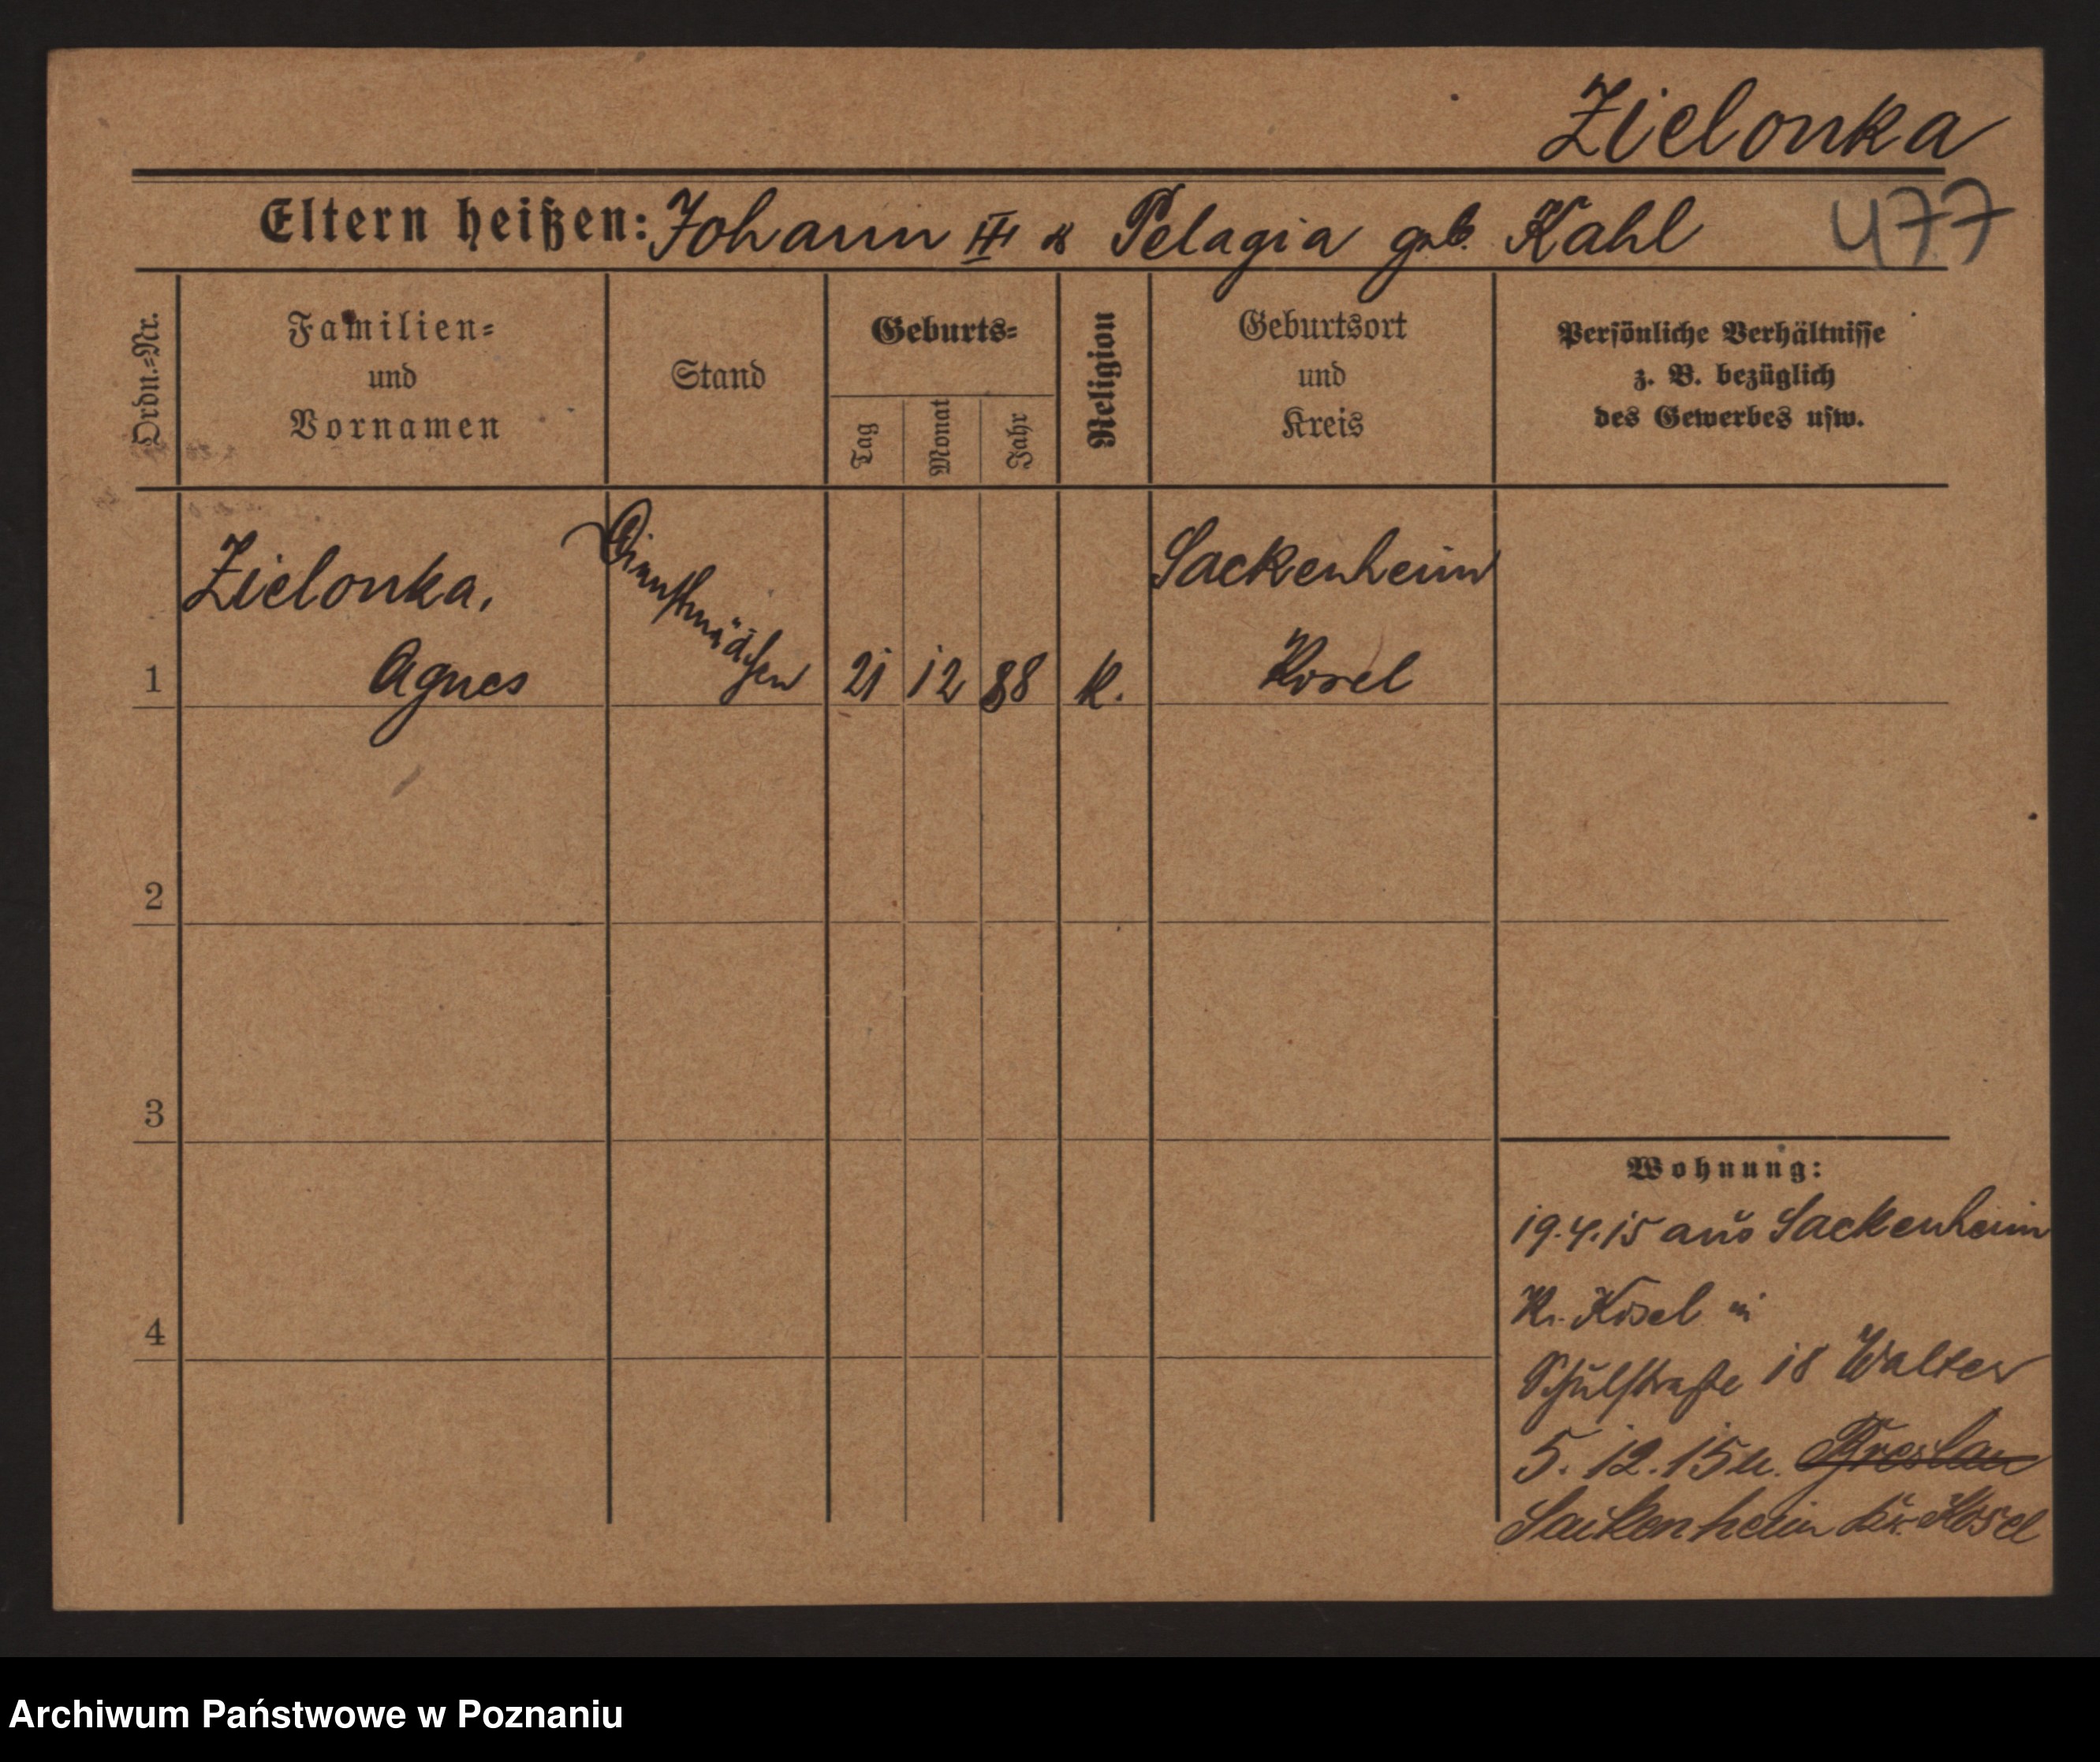 Zielonka
Eltern heißen: Johann III & Pelagia geb. Kahl 477
Ordn.=Nr.
Familien=
und
Vornamen
Stand
Geburts=
Tag
Monat
Jahr
Religion
Geburtsort
und
Kreis
Persönliche Verhältnisse
z. B. bezüglich
des Gewerbes usw.
Zielonka,
1 Agnes
Dienstmädchen
21 12 88 K.
Sackenheim
Kosel
2
3
4
Wohnung:
19.4.15 aus Sackenheim
Kr. Kosel in
Schulstraße 18 Walter
5.12.15 u. Breslau
Sackenheim Kr. Kosel
Archiwum Państwowe w Poznaniu